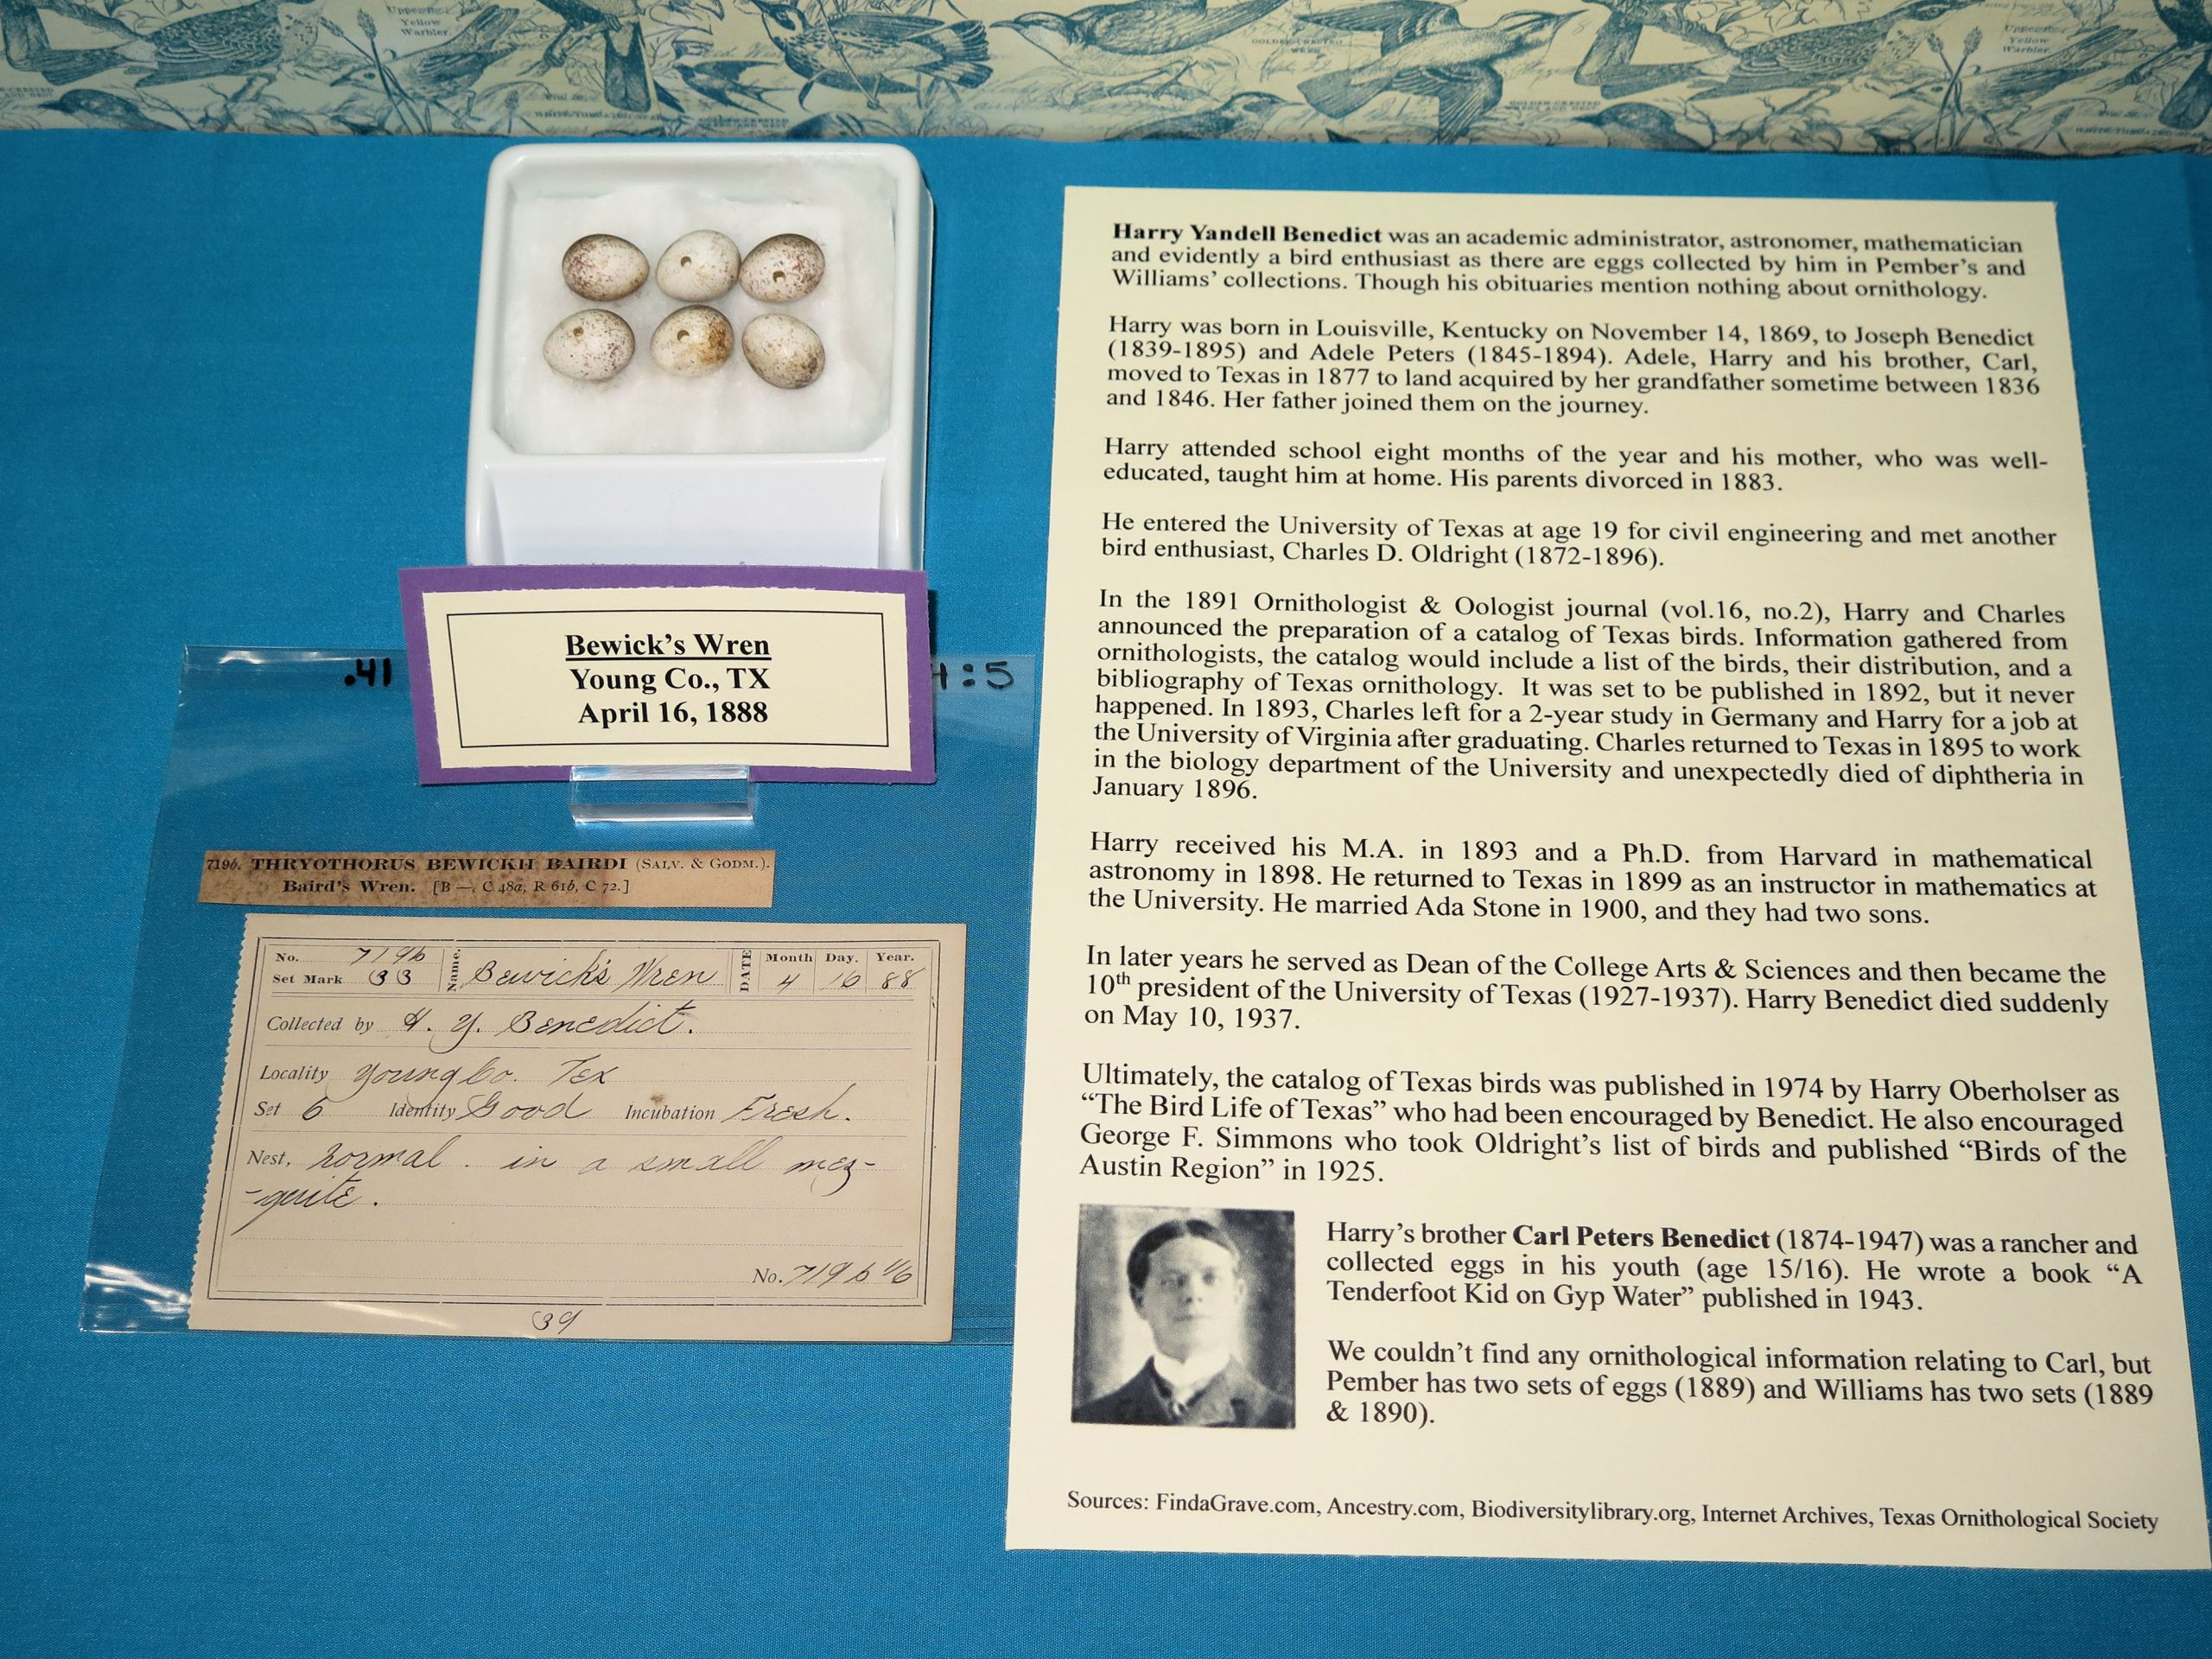 Upper
Yellow
Warbler.
Upper
Yellow
Warbler.
GOLDEN-CRESTED
Harry Yandell Benedict was an academic administrator, astronomer, mathematician
and evidently a bird enthusiast as there are eggs collected by him in Pember's and
Williams' collections. Though his obituaries mention nothing about ornithology.
Harry was born in Louisville, Kentucky on November 14, 1869, to Joseph Benedict
(1839-1895) and Adele Peters (1845-1894). Adele, Harry and his brother, Carl,
moved to Texas in 1877 to land acquired by her grandfather sometime between 1836
and 1846. Her father joined them on the journey.
Harry attended school eight months of the year and his mother, who was well-
educated, taught him at home. His parents divorced in 1883.
He entered the University of Texas at age 19 for civil engineering and met another
bird enthusiast, Charles D. Oldright (1872-1896).
In the 1891 Ornithologist & Oologist journal (vol.16, no.2), Harry and Charles
announced the preparation of a catalog of Texas birds. Information gathered from
ornithologists, the catalog would include a list of the birds, their distribution, and a
bibliography of Texas ornithology. It was set to be published in 1892, but it never
happened. In 1893, Charles left for a 2-year study in Germany and Harry for a job at
the University of Virginia after graduating. Charles returned to Texas in 1895 to work
in the biology department of the University and unexpectedly died of diphtheria in
January 1896.
Harry received his M.A. in 1893 and a Ph.D. from Harvard in mathematical
astronomy in 1898. He returned to Texas in 1899 as an instructor in mathematics at
the University. He married Ada Stone in 1900, and they had two sons.
In later years he served as Dean of the College Arts & Sciences and then became the
10th president of the University of Texas (1927-1937). Harry Benedict died suddenly
on May 10, 1937.
Ultimately, the catalog of Texas birds was published in 1974 by Harry Oberholser as
“The Bird Life of Texas” who had been encouraged by Benedict. He also encouraged
George F. Simmons who took Oldright's list of birds and published “Birds of the
Austin Region” in 1925.
Harry's brother Carl Peters Benedict (1874-1947) was a rancher and
collected eggs in his youth (age 15/16). He wrote a book “A
Tenderfoot Kid on Gyp Water” published in 1943.
We couldn't find any ornithological information relating to Carl, but
Pember has two sets of eggs (1889) and Williams has two sets (1889
& 1890).
Sources: FindaGrave.com, Ancestry.com, Biodiversitylibrary.org, Internet Archives, Texas Ornithological Society
Bewick's Wren
Young Co., TX
April 16, 1888
.41 :5
719b. THRYOTHORUS BEWICKII BAIRDI (SALV. & GODM.).
Baird's Wren. [B —, C 48a, R 61b, C 72.]
No. 719b Name. Bewick's Wren DATE Month Day. Year.
Set Mark 33 4 16 88
Collected by H. Y. Benedict.
Locality Young Co. Tex
Set 6 Identity Good Incubation Fresh.
Nest, normal. in a small mez-
-quite.
No. 719b 1/6
39